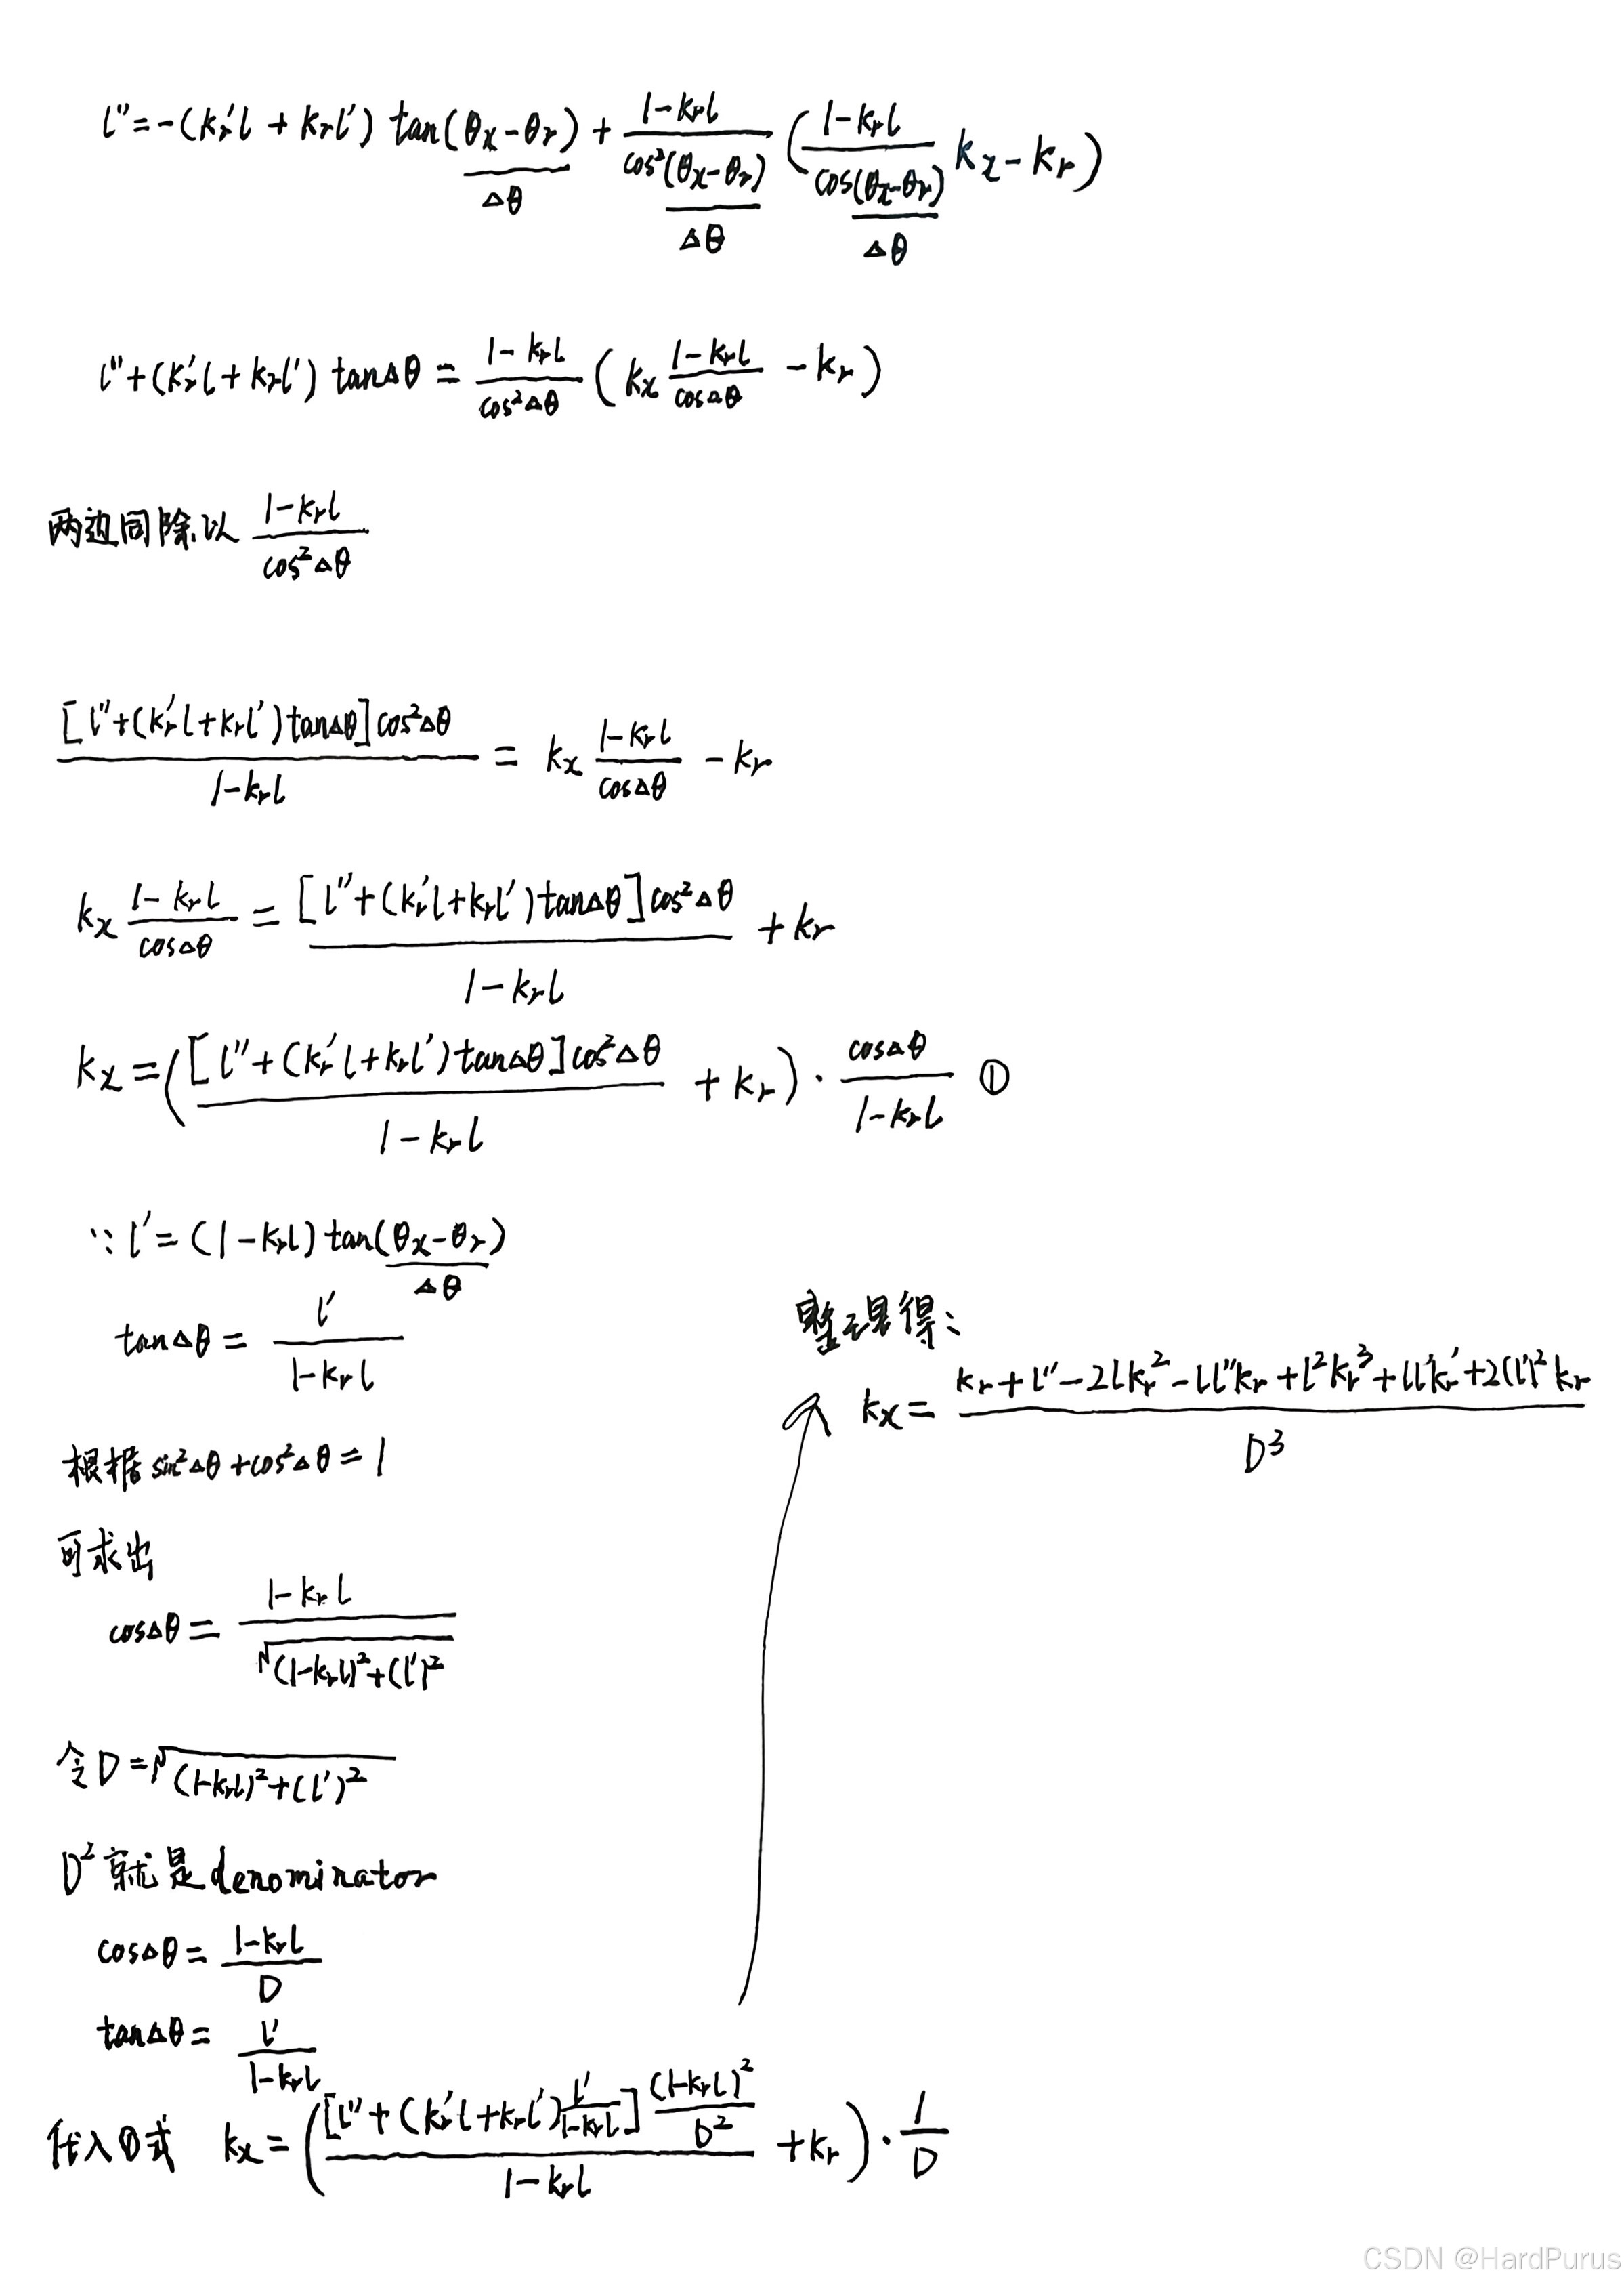 l''=-(kr'l+krl')tan(θx-θr)+(1-krl)/(cos²(θx-θr))((1-krl)/(cos(θx-θr))kx-kr)
Δθ Δθ Δθ
l''+(kr'l+krl')tanΔθ=(1-krl)/(cos²Δθ)(kx(1-krl)/(cosΔθ)-kr)
两边同除以(1-krl)/(cos²Δθ)
([l''+(kr'l+krl')tanΔθ]cos²Δθ)/(1-krl)=kx(1-krl)/(cosΔθ)-kr
kx(1-krl)/(cosΔθ)=([l''+(kr'l+krl')tanΔθ]cos²Δθ)/(1-krl)+kr
kx=(([l''+(kr'l+krl')tanΔθ]cos²Δθ)/(1-krl)+kr)·(cosΔθ)/(1-krl) ①
∵l'=(1-krl)tan(θx-θr)
Δθ
tanΔθ=l'/(1-krl)
根据sin²Δθ+cos²Δθ=1
可求出
cosΔθ=(1-krl)/√((1-krl)²+(l')²)
令D=√((1-krl)²+(l')²)
D²就是denominator
cosΔθ=(1-krl)/D
tanΔθ=l'/(1-krl)
代入①式 kx=(([l''+(kr'l+krl')l'/(1-krl)](1-krl)²/D²)/(1-krl)+kr)·1/D
整理得:
kx=(kr+l''-2lkr²-ll''kr+l²kr³+ll'kr'+2(l')²kr)/D³
CSDN @HardPurus